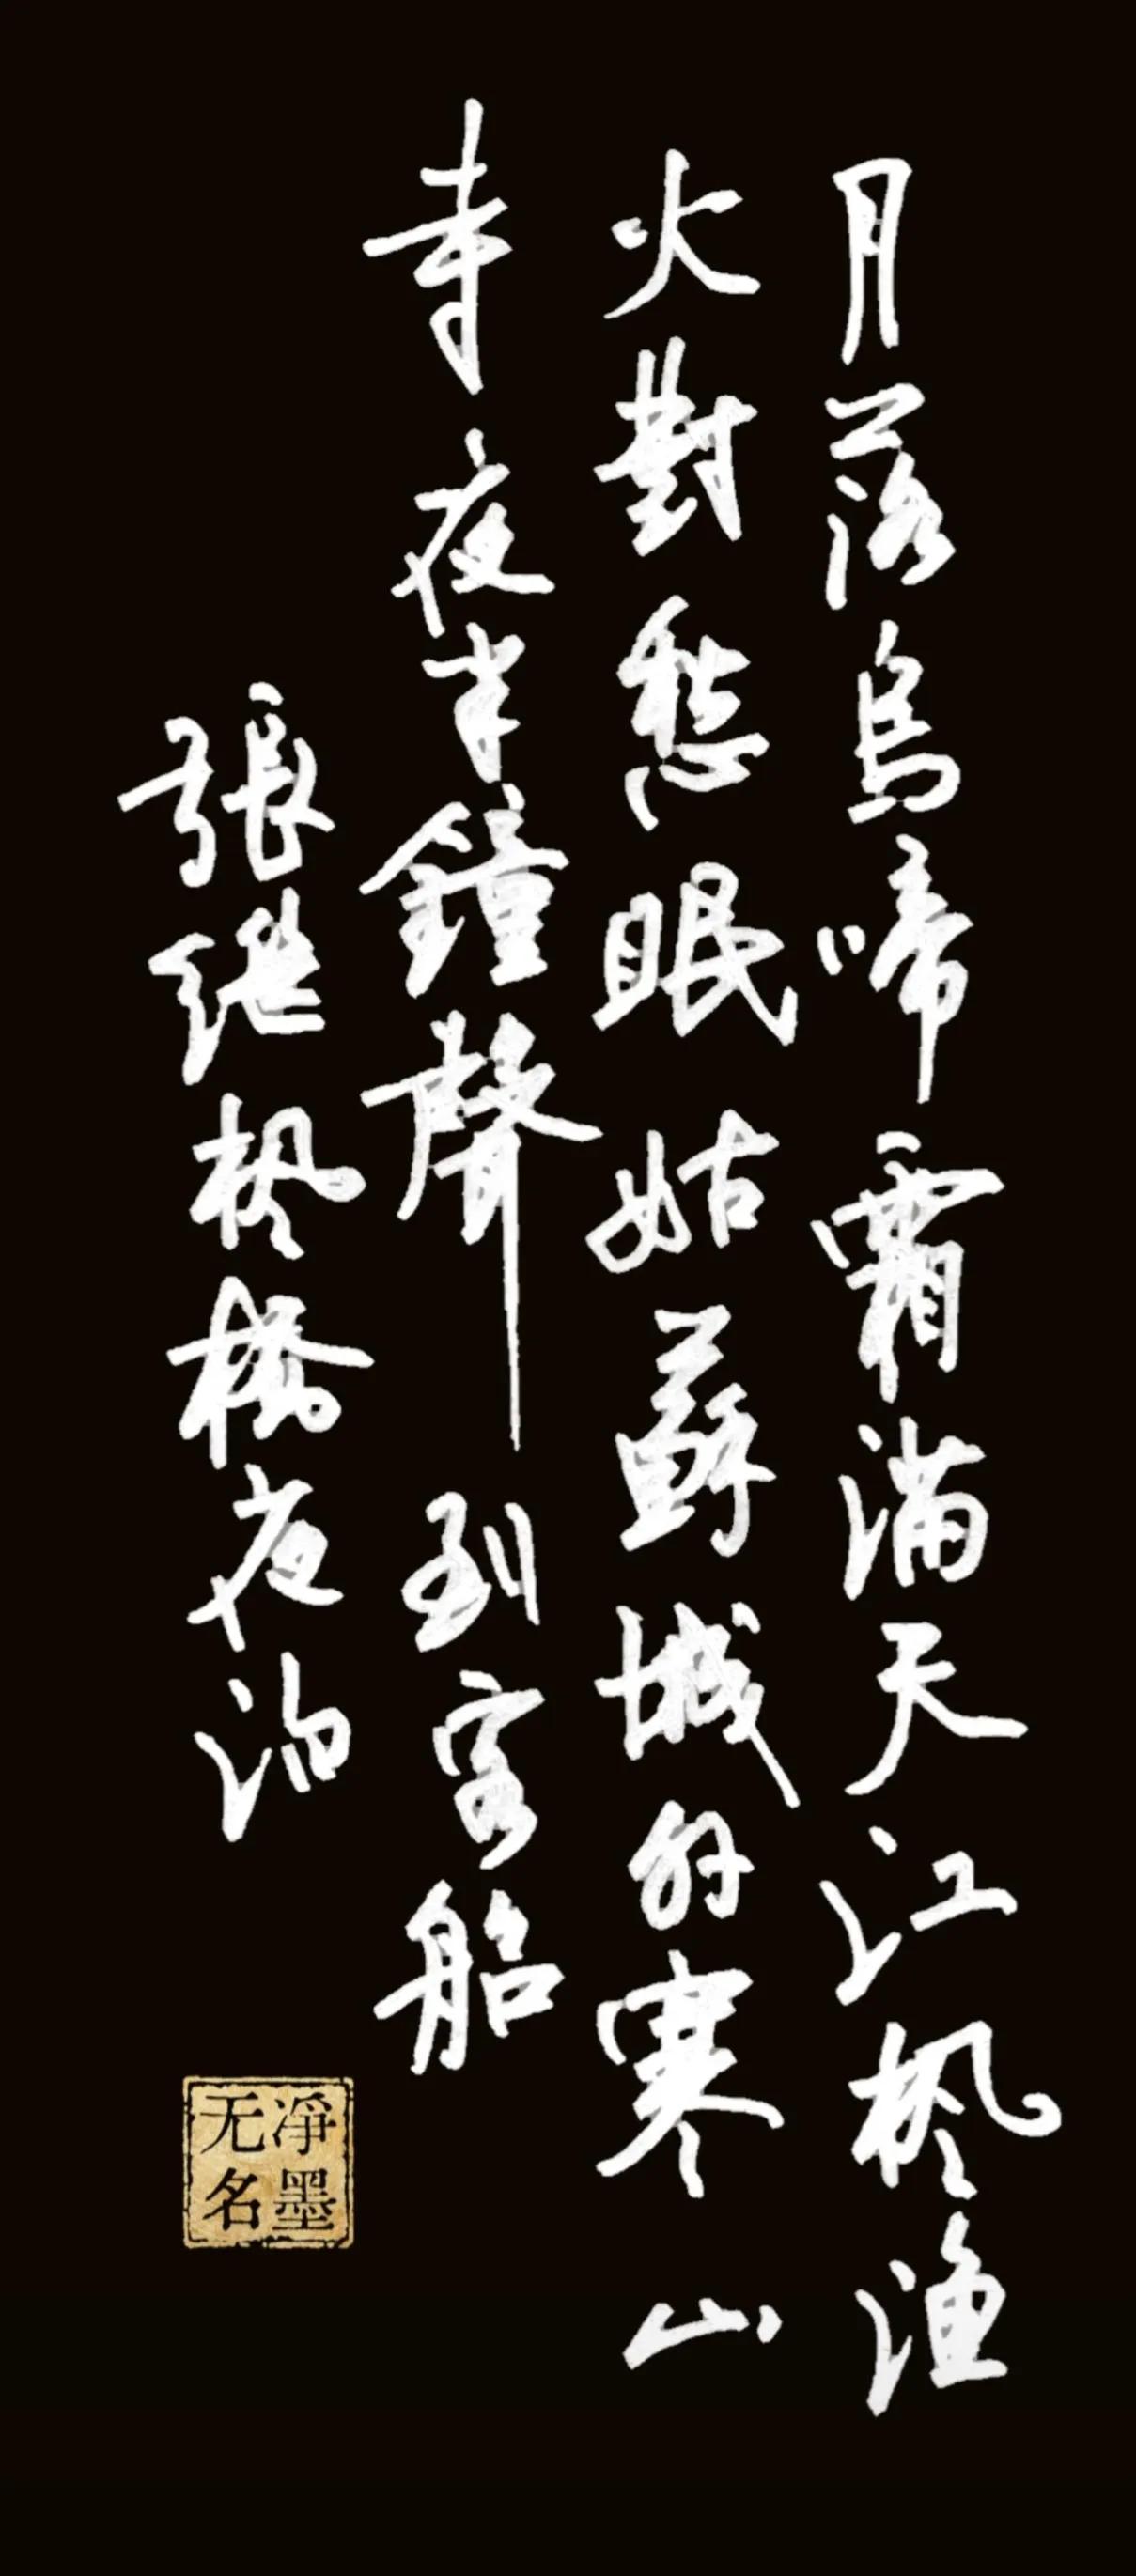 月落烏啼霜滿天江枫渔
火對愁眠姑蘇城外寒山
寺夜半鐘聲到客船
張继枫橋夜泊
净墨
无名